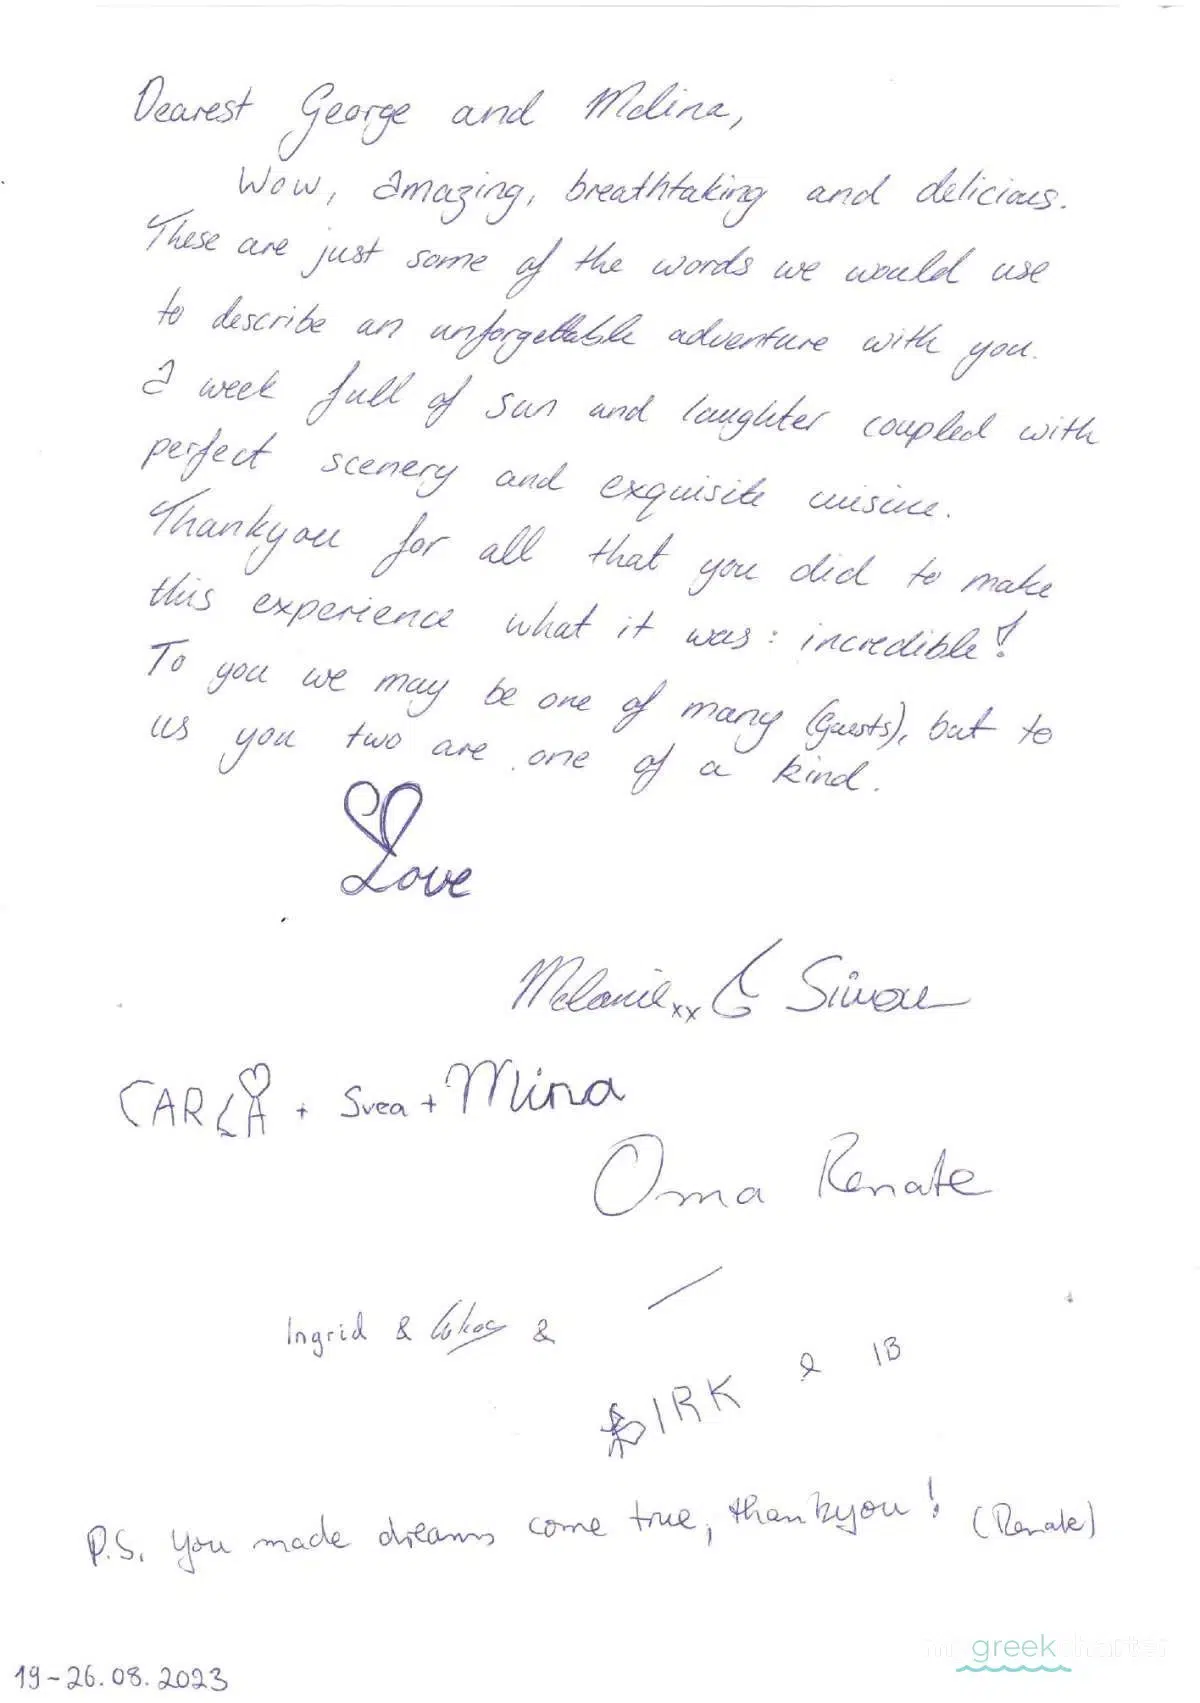 Dearest George and Melina,
Wow, amazing, breathtaking and delicious.
These are just some of the words we would use
to describe an unforgettable adventure with you.
A week full of sun and laughter coupled with
perfect scenery and exquisite cuisine.
Thankyou for all that you did to make
this experience what it was: incredible!
To you we may be one of many (Guests), but to
us you two are one of a kind.
Love
Melanie xx Simon
CARLA + Svea + Mina
Oma Renate
Ingrid & &
& IB
P.S. You made dreams come true, thankyou! (Renate)
greek charter
19-26.08.2023